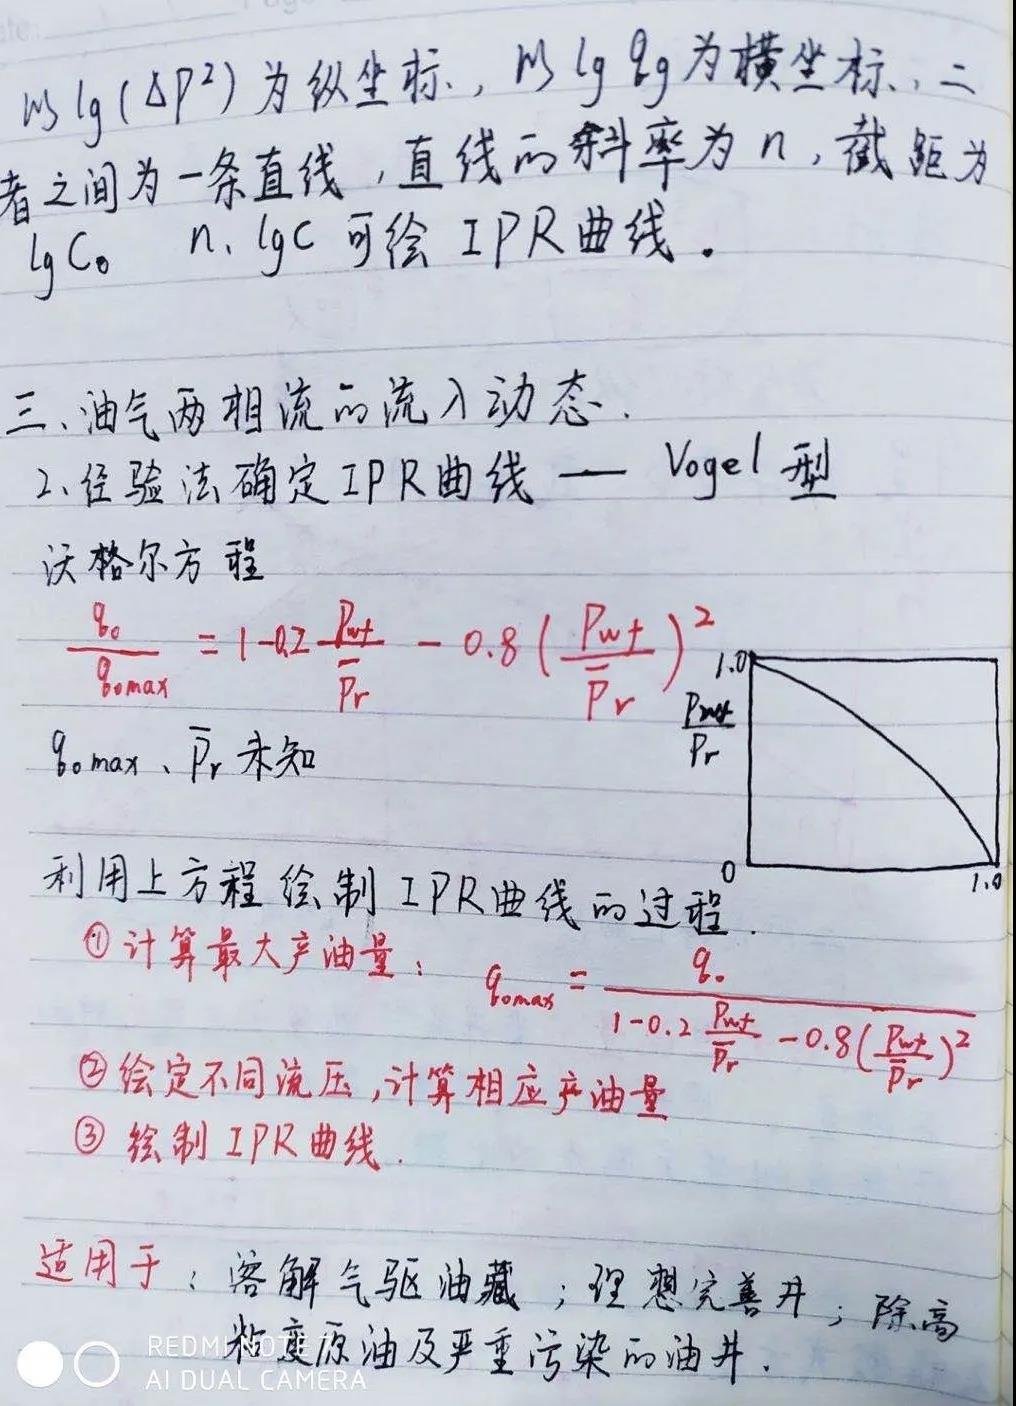 以lg(ΔP²)为纵坐标，以lg qg为横坐标，二
者之间为一条直线，直线的斜率为n，截距为
lgC。 n、lgC 可绘 IPR曲线。
三、油气两相流的流入动态.
2、经验法确定IPR曲线 — Vogel 型
沃格尔方程
qo/qomax = 1-0.2 Pwf/P̄r - 0.8(Pwf/P̄r)²
1.0
Pwf/Pr
0
1.0
qomax、P̄r 未知
利用上方程绘制IPR曲线的过程.
①计算最大产油量： qomax = qo/(1-0.2 Pwf/P̄r -0.8(Pwf/P̄r)²)
②给定不同流压,计算相应产油量
③ 绘制 IPR曲线.
适用于：溶解气驱油藏；理想完善井；除高
粘度原油及严重污染的油井.
REDMI NOTE
AI DUAL CAMERA